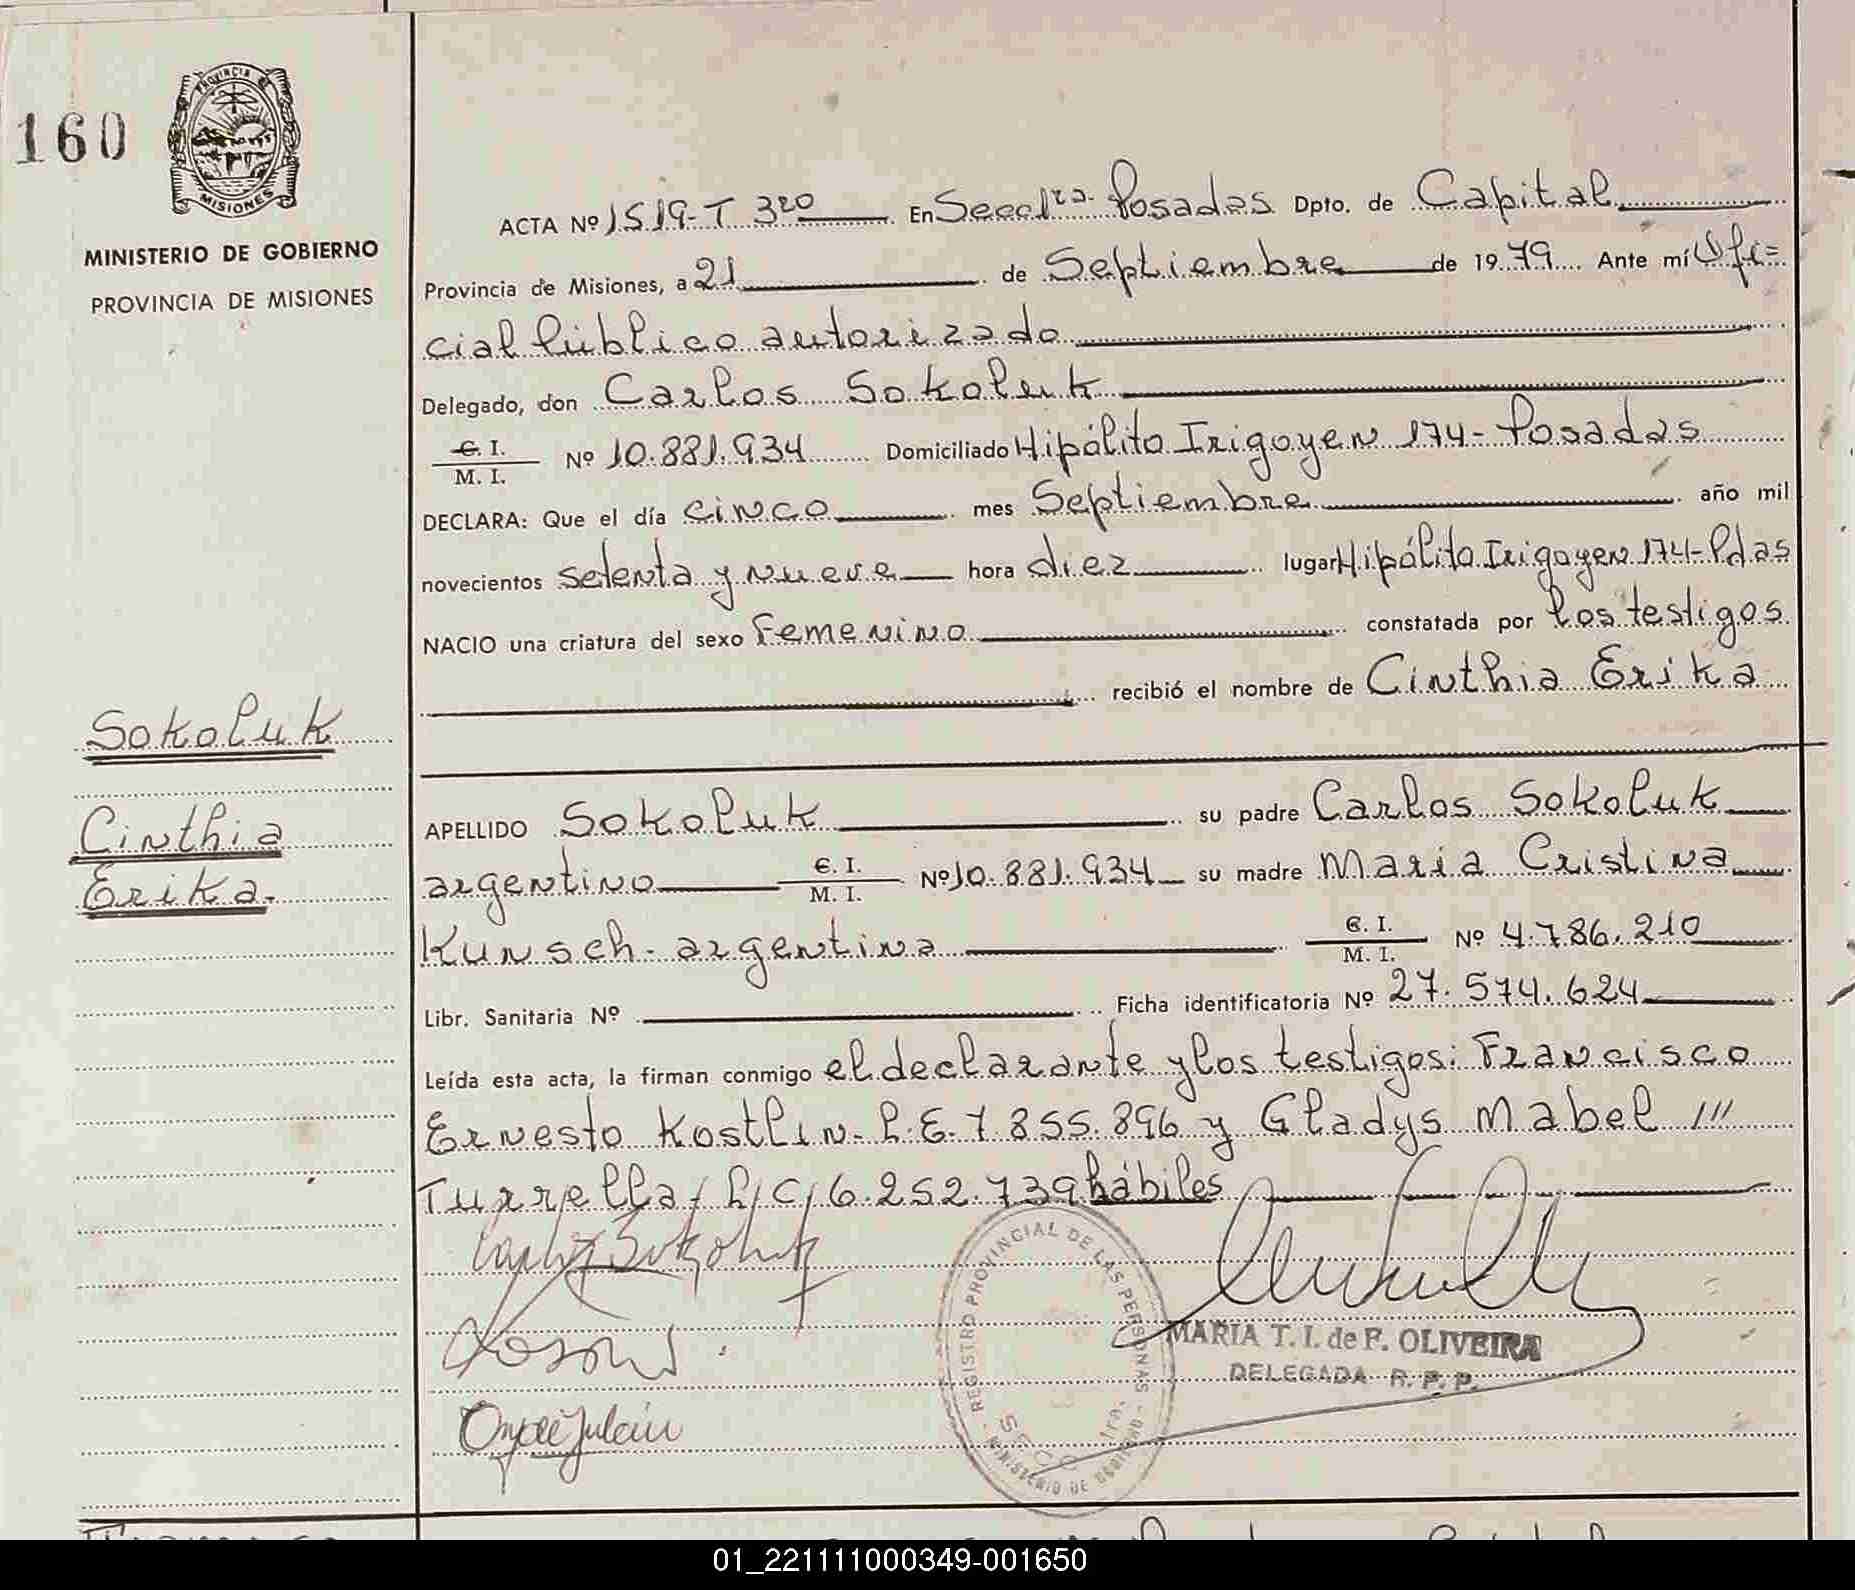 160
PROVINCIA DE
MISIONES
MINISTERIO DE GOBIERNO
PROVINCIA DE MISIONES
Sokoluk
Cinthia
Erika.
ACTA Nº 1519-T 3º En Secc 1ra. Posadas Dpto. de Capital
Provincia de Misiones, a 21 de Septiembre de 1979. Ante mí Ofi=
cial Público autorizado
Delegado, don Carlos Sokoluk
C. I.
M. I. Nº 10.881.934 Domiciliado Hipólito Irigoyen 174- Posadas
DECLARA: Que el día cinco mes Septiembre año mil
novecientos setenta y nueve hora diez lugar Hipólito Irigoyen 174-Pdas
NACIO una criatura del sexo Femenino constatada por los testigos
recibió el nombre de Cinthia Erika
APELLIDO Sokoluk su padre Carlos Sokoluk
argentino C. I. M. I. Nº 10.881.934 su madre Maria Cristina
Kunsch- argentina C. I. M. I. Nº 4.786.210
Libr. Sanitaria Nº Ficha identificatoria Nº 27.574.624
Leída esta acta, la firman conmigo el declarante y los testigos: Francisco
Ernesto Kostlin- L.E. 7.855.896 y Gladys Mabel ///
Turrella/ L/C/ 6.252.739 hábiles
REGISTRO PROVINCIAL DE LAS PERSONAS - MINISTERIO DE GOBIERNO -
SECC. 1ra.
MARIA T. I. de F. OLIVEIRA
DELEGADA R. P. P.
01_221111000349-001650